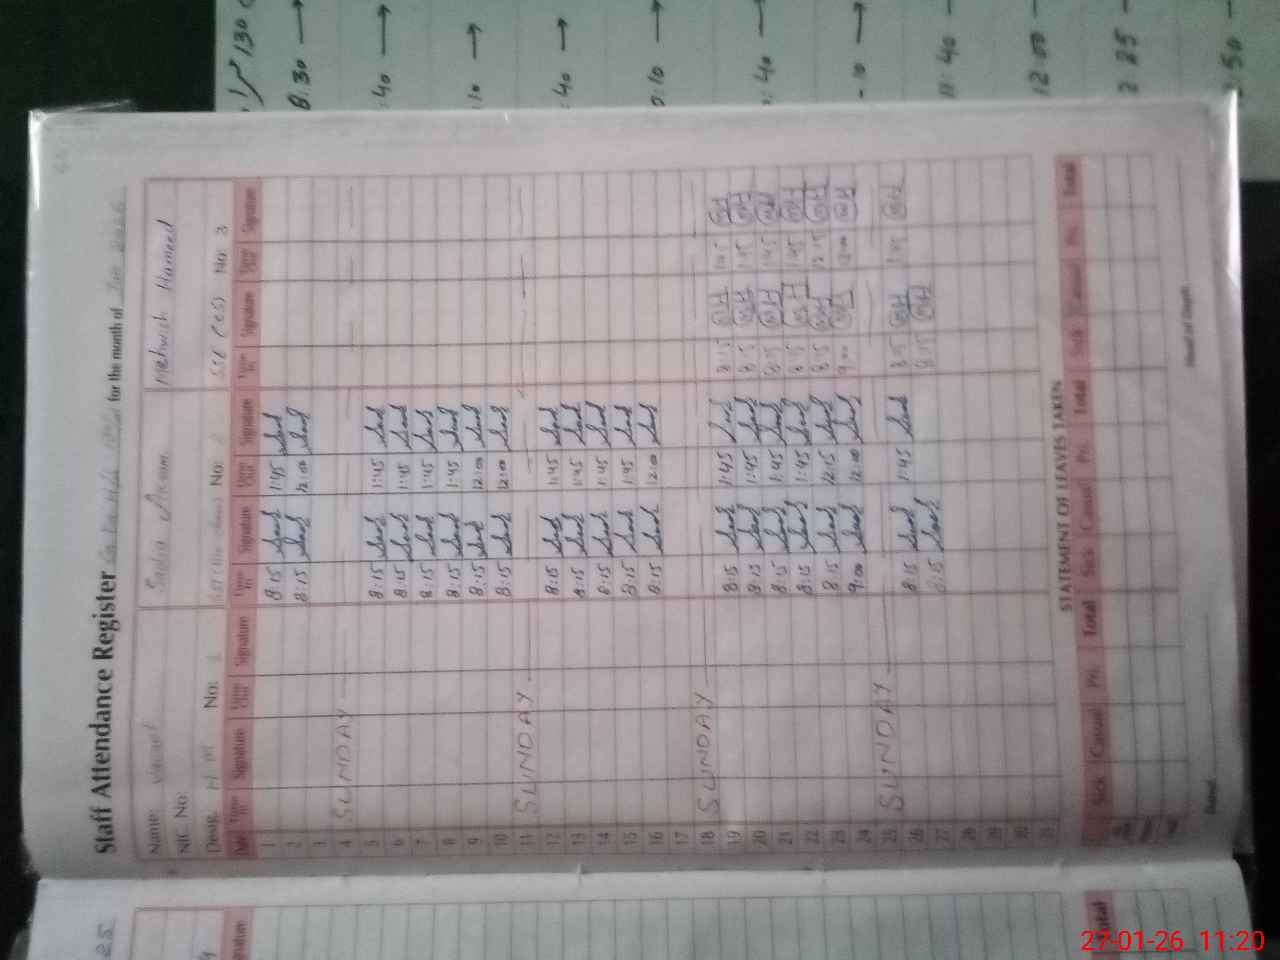 1/130
8:30 → :40 → :10 → :40 → 0:10 → :40 → :10 → 11:40 12:00 2 25 :50
Staff Attendance Register for the month of Jan 2026
Name: Vacant Sadia Akram Mehwish Hameed
NIC No:
Desig. H M No: 1 No: 2 SSE (CS) No: 3
Date Time In Signature Time Out Signature Time In Signature Time Out Signature Time In Signature Time Out Signature
1 8:15 1:45
2 8:15 12:00
3
4 SUNDAY
5 8:15 1:45
6 8:15 1:45
7 8:15 1:45
8 8:15 1:45
9 8:15 12:00
10 8:15 12:00
11 SUNDAY
12 8:15 1:45
13 8:15 1:45
14 8:15 1:45
15 8:15 1:45
16 8:15 12:00
17
18 SUNDAY
19 8:15 1:45 8:15 MH 1:45 MH
20 8:15 1:45 8:15 MH 1:45 MH
21 8:15 1:45 8:15 MH 1:45 MH
22 8:15 1:45 8:15 MH 1:45 MH
23 8:15 12:15 8:15 MH 12:15 MH
24 9:00 12:00 9:00 MH 12:00 MH
25 SUNDAY
26 8:15 1:45 8:15 MH 1:45 MH
27 8:15 8:15 MH
28
29
30
31
STATEMENT OF LEAVES TAKEN
Sick Casual Pri. Total Sick Casual Pri. Total Sick Casual Pri. Total
Dated Head of Deptt.
25
Signature
Total
27-01-26 11:20